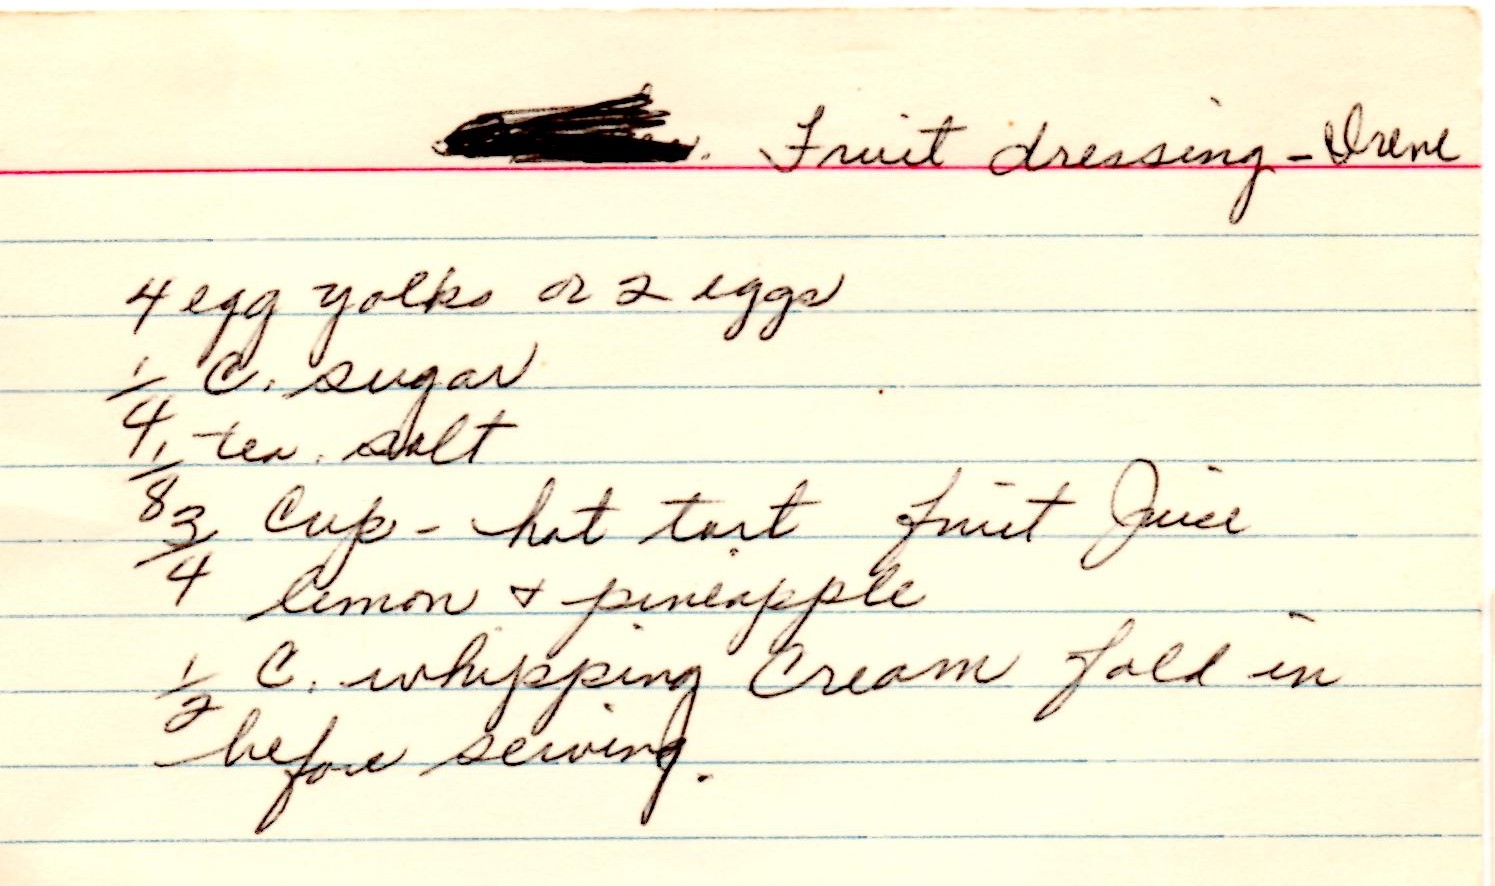 Fruit dressing - Irene
4 egg yolks or 2 eggs
1/4 C. sugar
1/8 tea. salt
3/4 Cup - hot tart fruit Juice
lemon & pineapple
1/2 C. whipping Cream fold in
before serving.